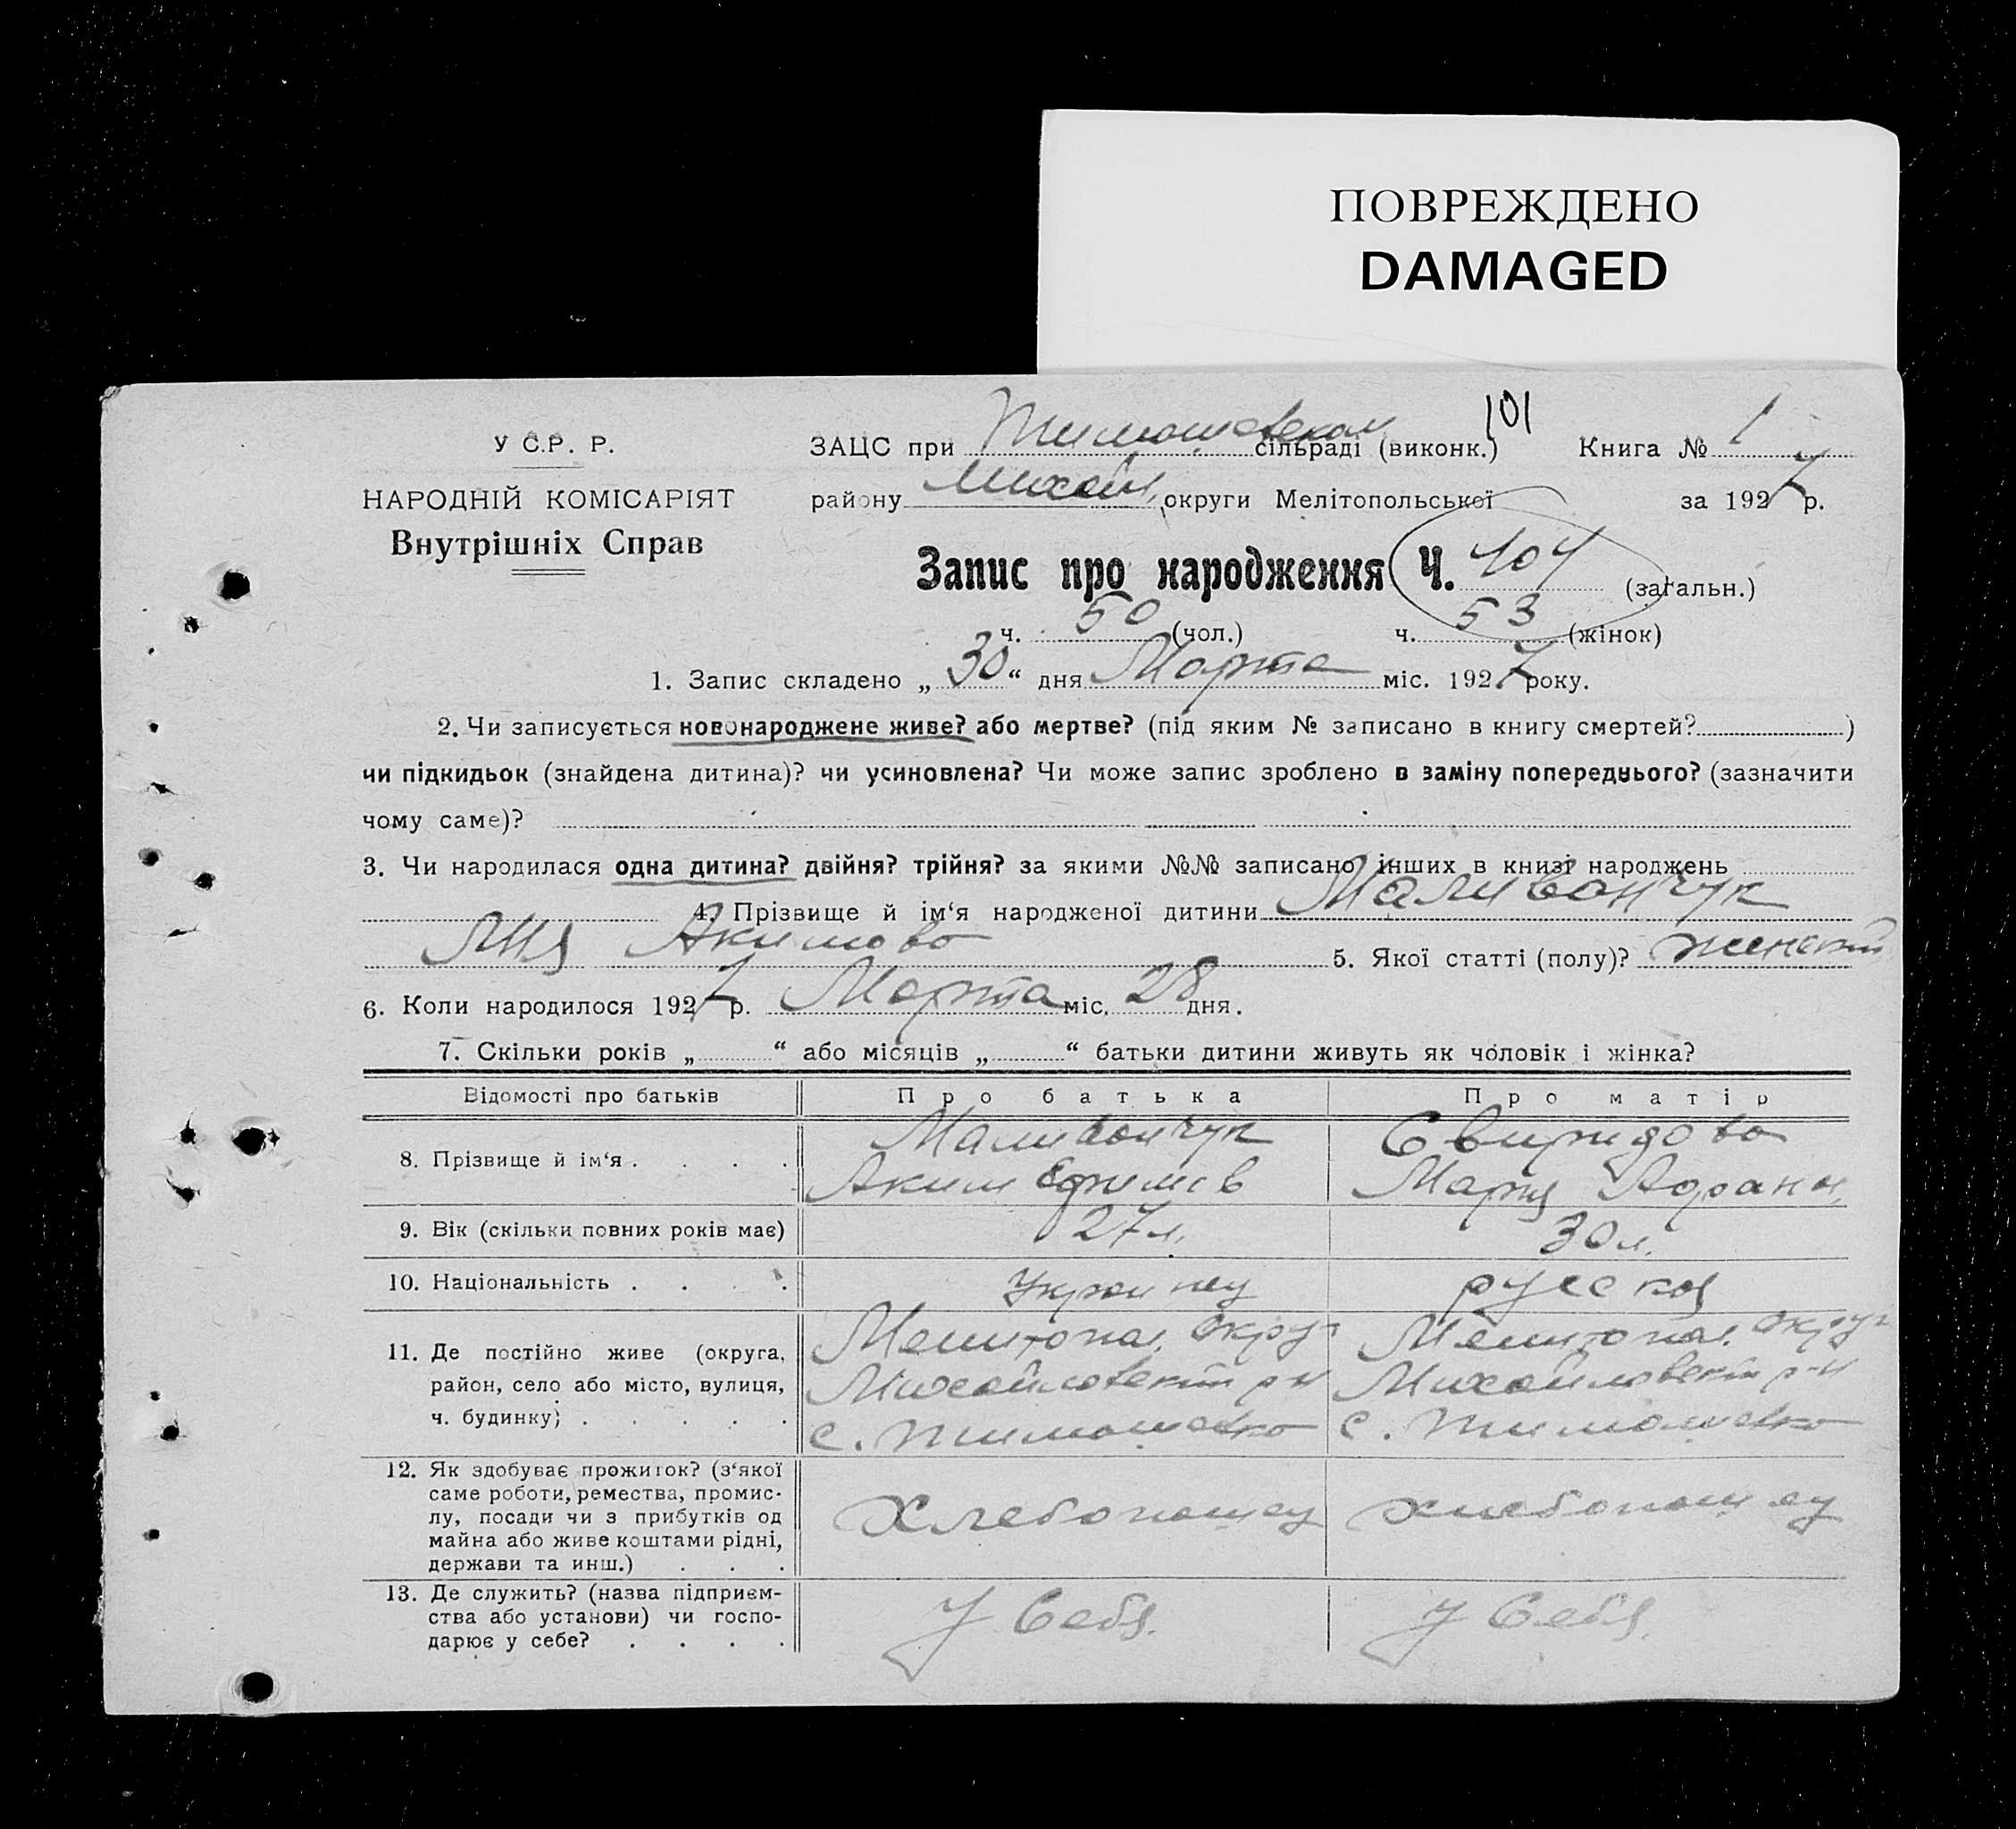 ПОВРЕЖДЕНО
DAMAGED
101
У С.Р. Р.
НАРОДНІЙ КОМІСАРІЯТ
Внутрішніх Справ
ЗАЦС при Тимошовском сільраді (виконк.) Книга № 1
району Михайл. округи Мелітопольської за 1927 р.
Запис про народження Ч. 104 (загальн.)
ч. 50 (чол.) ч. 53 (жінок)
1. Запис складено „30“ дня Марта міс. 1927 року.
2. Чи записується новонароджене живе? або мертве? (під яким № записано в книгу смертей? )
чи підкидьок (знайдена дитина)? чи усиновлена? Чи може запис зроблено в заміну попереднього? (зазначити
чому саме)?
3. Чи народилася одна дитина? двійня? трійня? за якими №№ записано інших в книзі народжень
4. Прізвище й ім‘я народженої дитини Маливончук
Акимова 5. Якої статті (полу)? женский
6. Коли народилося 1927 р. Марта міс. 28 дня.
7. Скільки років „ “ або місяців „ “ батьки дитини живуть як чоловік і жінка?
Відомості про батьків Про батька Про матір
8. Прізвище й ім‘я . . . . Маливончук Аким Ефимов Свиридова Мария
9. Вік (скільки повних років має) 27 л. 30 л.
10. Національність . . . . Украинец русская
11. Де постійно живе (округа, Мелитопол. округ Мелитопол. округ
район, село або місто, вулиця, Михайловский р-н Михайловский р-н
ч. будинку) . . . . . с. Тимошовка с. Тимошовка
12. Як здобуває прожиток? (з‘якої
саме роботи, ремества, промис-
лу, посади чи з прибутків од Хлебопашец хлебопашец
майна або живе коштами рідні,
держави та инш.) . . .
13. Де служить? (назва підприєм-
ства або установи) чи госпо- У Себя. У Себя.
дарює у себе? . . . .